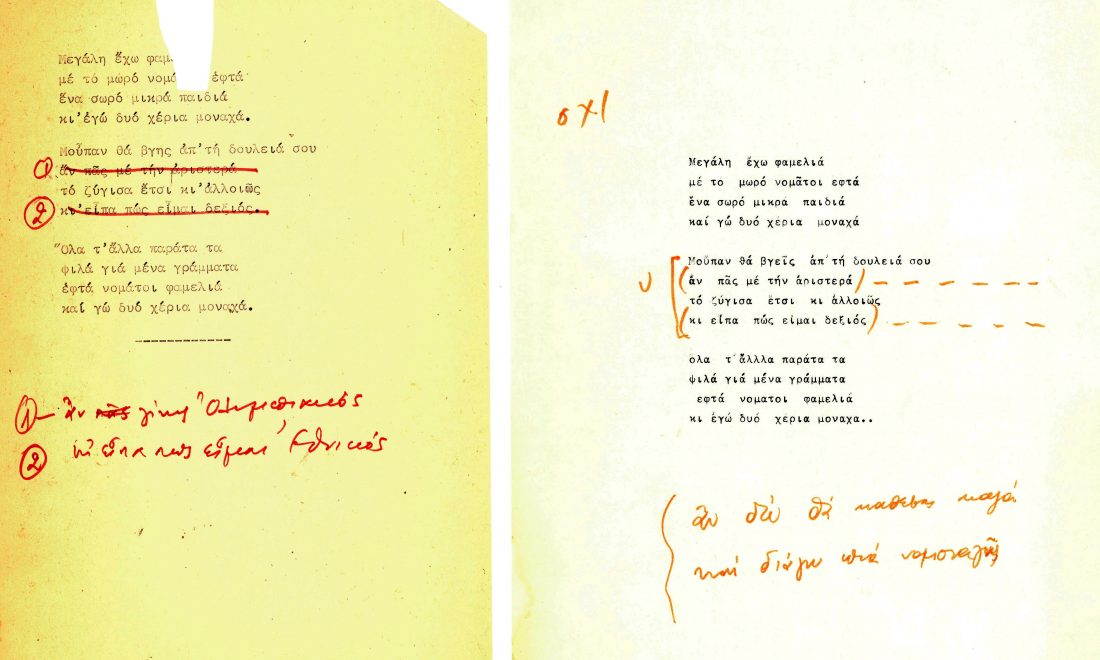 Μεγάλη ἔχω
μέ τό μωρό ἑφτά
ἕνα σωρό μικρά παιδιά
κι'ἐγώ δυό χέρια μοναχά.
Μοὔπαν θά βγης ἀπ'τή δουλειά σου
① ἄν πᾶς μέ τήν ἀριστερά
τό ζύγισα ἔτσι κι'ἀλλοιῶς
② κι'εἶπα πώς εἶμαι δεξιός.
Ὅλα τ'ἄλλα παράτα τα
ψιλά γιά μένα γράμματα
ἑφτά νομάτοι φαμελιά
καί γώ δυό χέρια μοναχά.
------------
① ἄν πᾶς γίνης Ὀλυμπιακός
② κι εἶπα πώς εἶμαι Ἐθνικός
όχι
Μεγάλη ἔχω φαμελιά
μέ το μωρό νομᾶτοι εφτά
ἕνα σωρό μικρά παιδιά
καί γώ δυό χέρια μοναχά
Μοὔπαν θά βγεῖς ἀπ'τή δουλειά σου
(ἄν πᾶς μέ τήν ἀριστερά) – – – – – –
τό ζύγισα ἔτσι κι ἀλλοιῶς
(κι εἶπα πώς εἰμαι δεξιός) – – – – – –
ὁλα τ'ἄλλλα παράτα τα
ψιλά γιά μένα γράμματα
εφτά νοματοι φαμελιά
κι ἐγώ δυό χερια μοναχα..
ἄν δέν θά κάθεσαι καλά
καί διάγω πιά νομοταγῶς